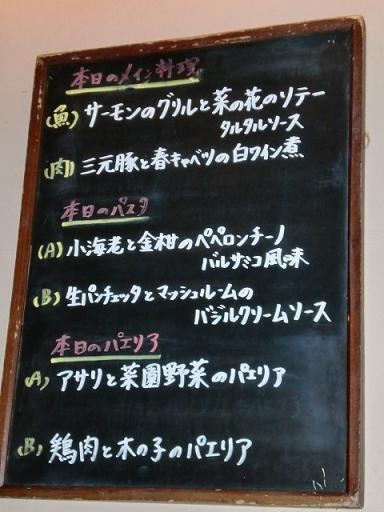 本日のメイン料理
(魚) サーモンのグリルと菜の花のソテー
タルタルソース
(肉) 三元豚と春キャベツの白ワイン煮
本日のパスタ
(A) 小海老と金柑のペペロンチーノ
バルサミコ風味
(B) 生パンチェッタとマッシュルームの
バジルクリームソース
本日のパエリア
(A) アサリと菜園野菜のパエリア
(B) 鶏肉と木の子のパエリア